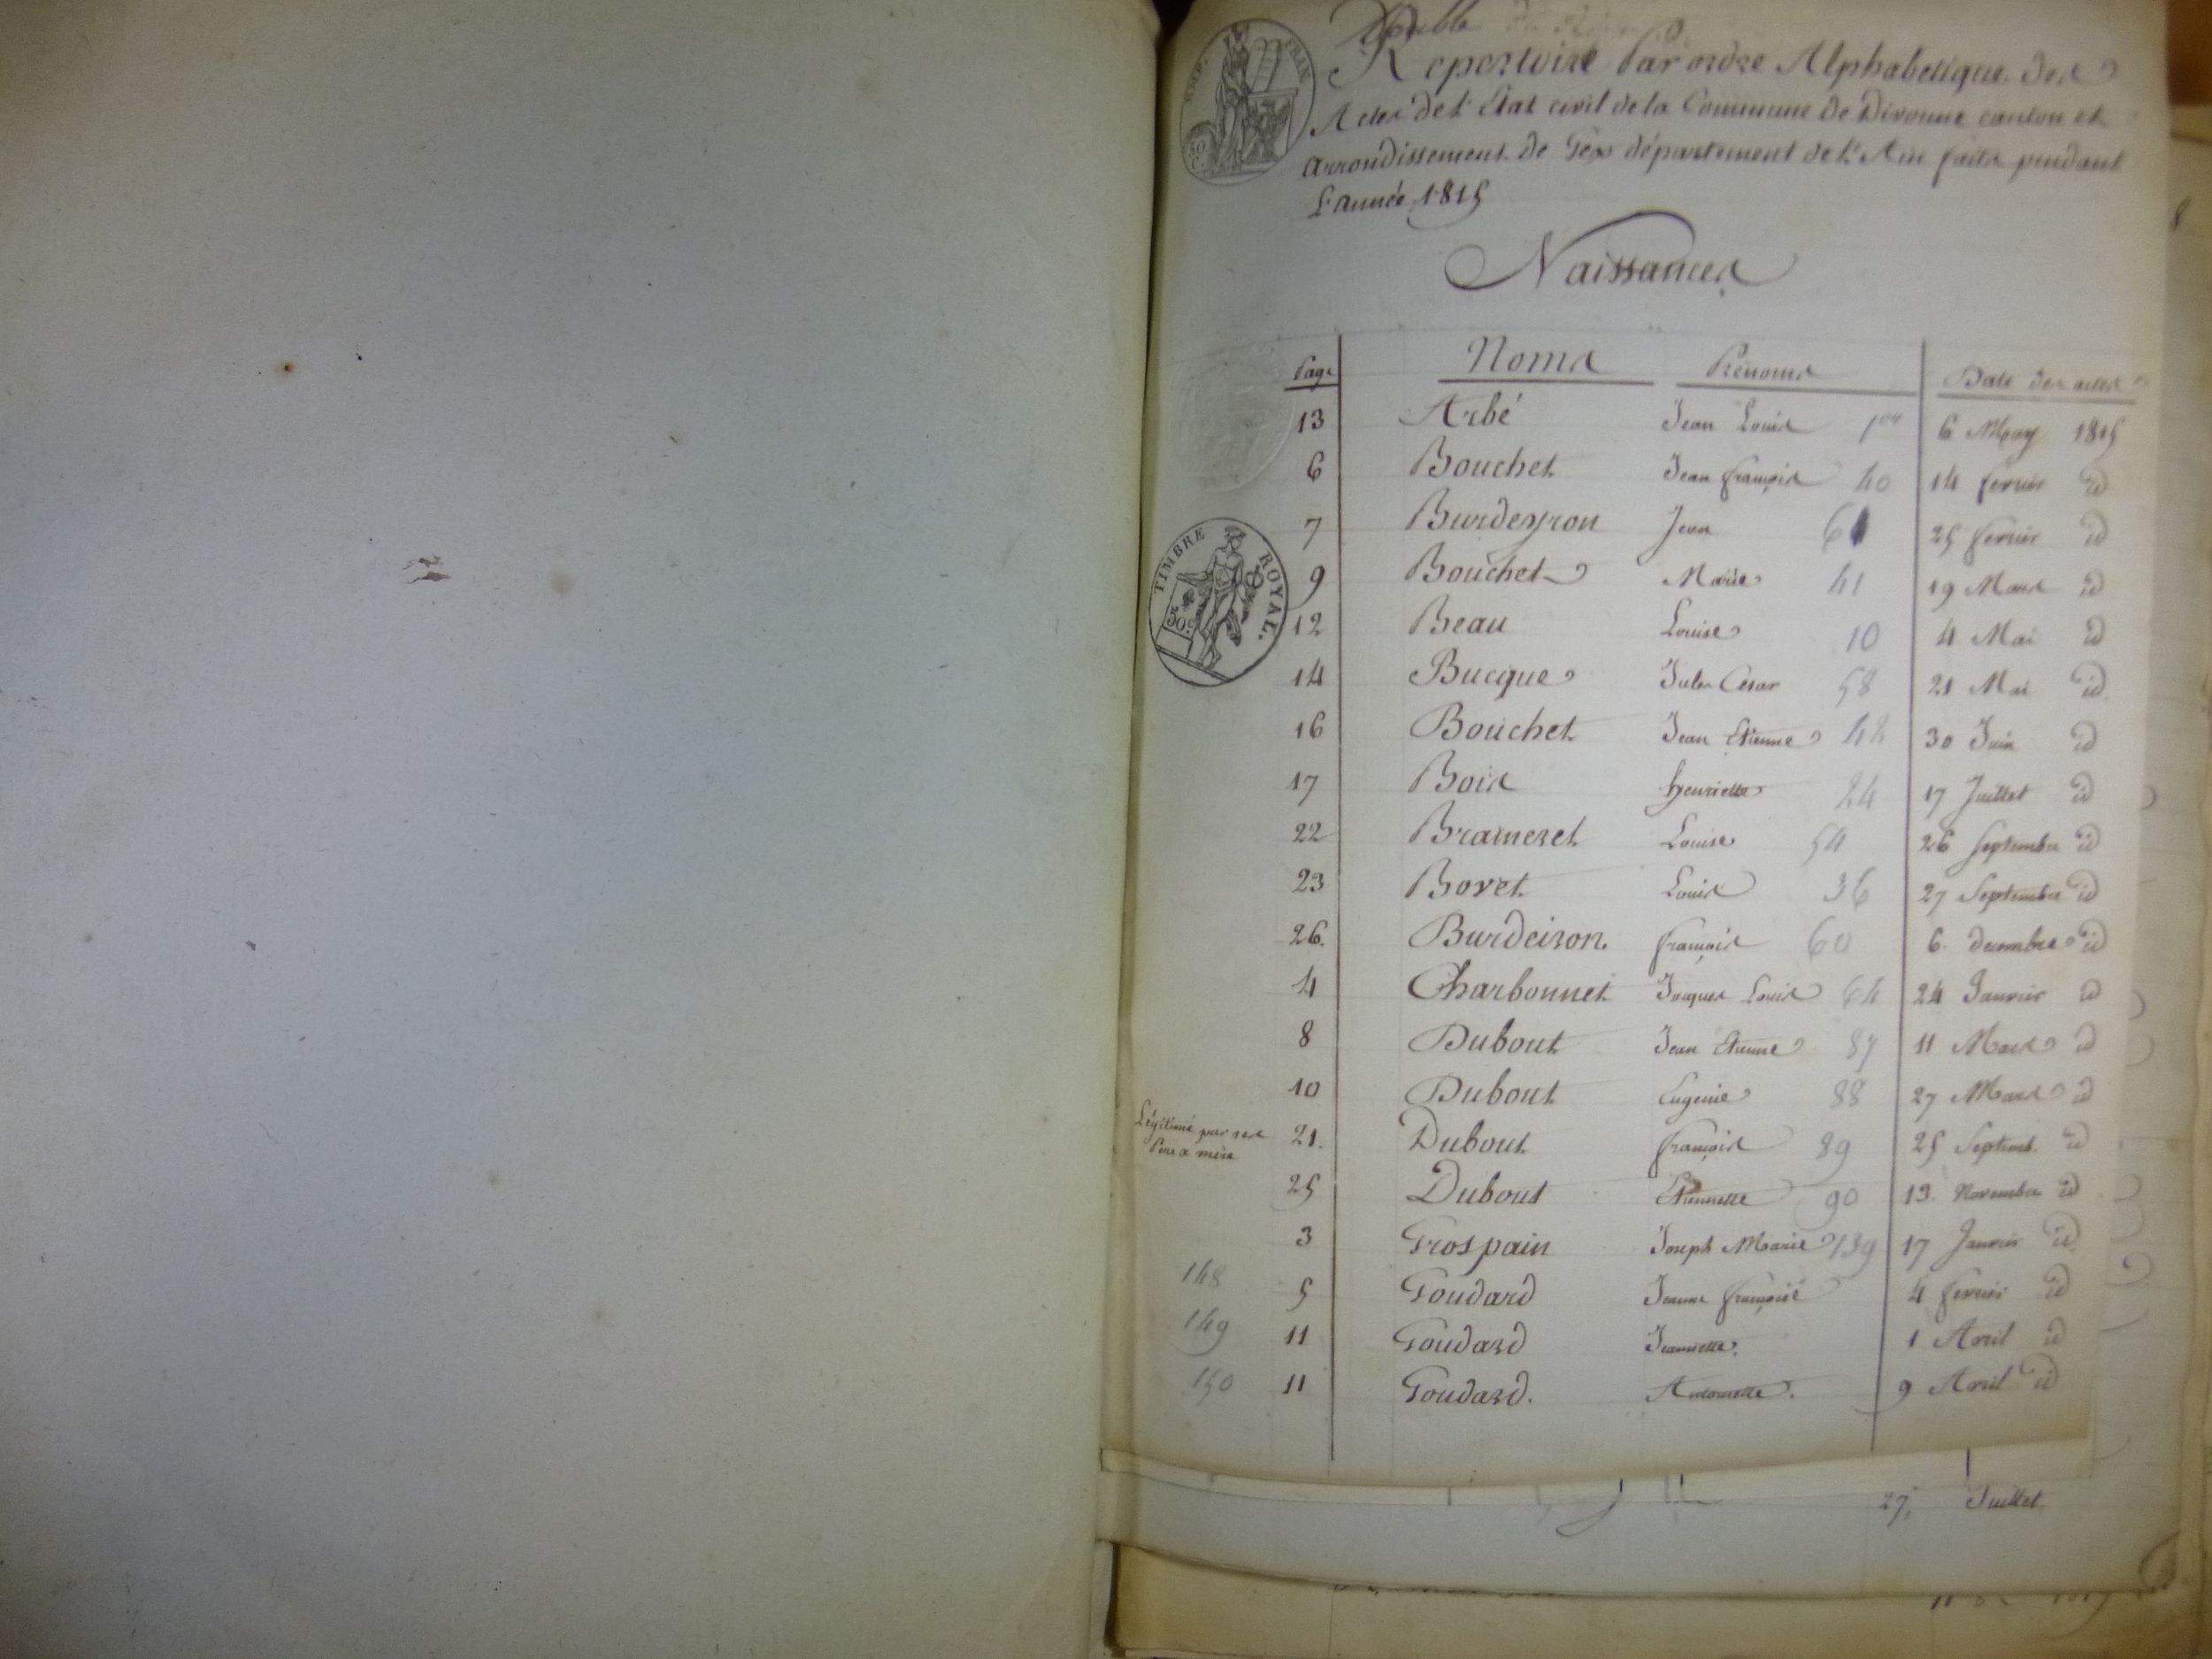 Double
Repertoire Par ordre Alphabetique des
Actes de l'Etat civil de la Commune de Divonne canton et
arrondissement de Gex département de l'Ain faits pendant
L'année 1815
EMP. FRAN.
30 C
Naissances
Page Noms Prénoms Date des actes
13 Arbé Jean Louis 1er 6 May 1815
6 Bouchet Jean françois 40 14 fevrier id
7 Burdeyron Jean 61 25 fevrier id
9 Bouchet Marie 41 19 Mars id
TIMBRE ROYAL.
50 c
12 Beau Louise 10 4 Mai id
14 Bucque Jules César 58 21 Mai id
16 Bouchet Jean Etienne 42 30 Juin id
17 Bois henriette 24 17 Juillet id
22 Brameret Louise 54 26 Septembre id
23 Bovet Louis 36 27 Septembre id
26. Burdeiron françois 60 6 decembre id
4 Charbonnet Jacques Louis 64 24 Janvier id
8 Dubout Jean Etienne 87 11 Mars id
10 Dubout Eugenie 88 27 Mars id
Légitimé par ses
Père et mère
21. Dubout françois 89 25 Septemb. id
25 Dubout Etiennette 90 13. Novembre id
3 Grospain Joseph Marie 139 17 Janvier id
148 5 Goudard Jeanne françoise 4 fevrier id
149 11 Goudard Jeannette. 1 Avril id
150 11 Goudard. Antoinette. 9 Avril id
27, Juillet